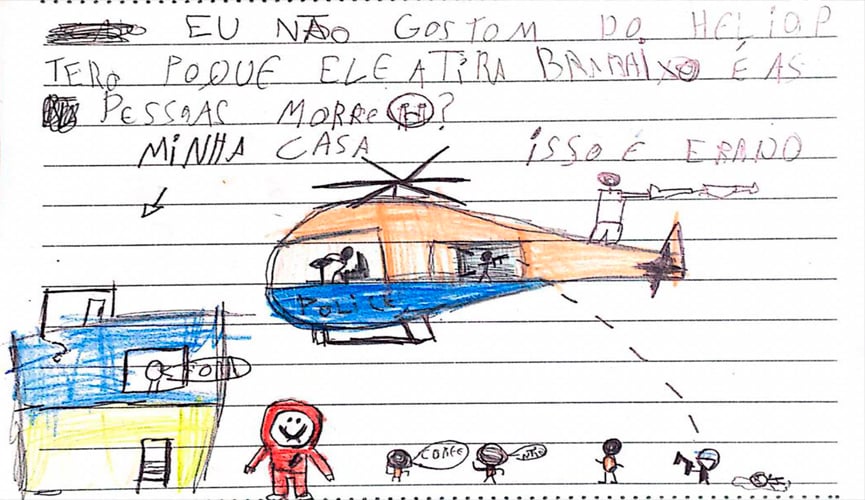 EU NÃO GOSTOM DO HELIOP
TERO POQUE ELE ATIRA BRAMAIXO É AS
PESSOAS MORREM?
MINHA CASA
ISSO É ERADO
POLICE
CORRE
NÃO